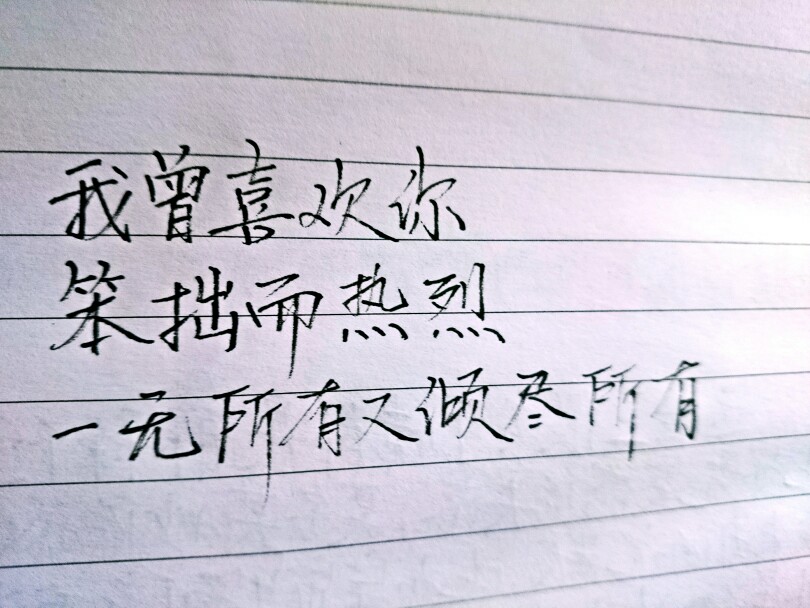 我曾喜欢你
笨拙而热烈
一无所有又倾尽所有